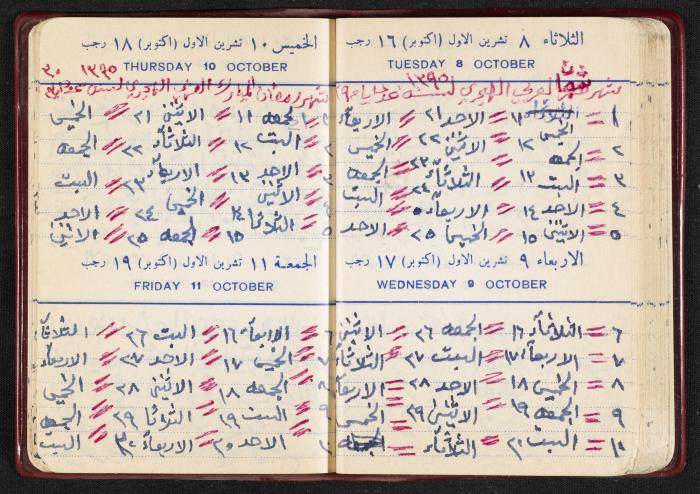 الثلاثاء ٨ تشرين الاول (اكتوبر) ١٦ رجب
TUESDAY 8 OCTOBER
شهر شعبان العربي الهجري لسنة ١٣٩٥ عدد ايامه ٢٩
١ = الخميس ١١ = الاحد ٢١ = الاربعاء
٢ = الجمعه ١٢ = الاثنين ٢٢ = الخميس
٣ = السبت ١٣ = الثلاثاء ٢٣ = الجمعه
٤ = الاحد ١٤ = الاربعاء ٢٤ = السبت
٥ = الاثنين ١٥ = الخميس ٢٥ = الاحد
الاربعاء ٩ تشرين الاول (اكتوبر) ١٧ رجب
WEDNESDAY 9 OCTOBER
٦ = الثلاثاء ١٦ = الجمعه ٢٦ = الاثنين
٧ = الاربعاء ١٧ = السبت ٢٧ = الثلاثاء
٨ = الخميس ١٨ = الاحد ٢٨ = الاربعاء
٩ = الجمعه ١٩ = الاثنين ٢٩ = الخميس
١٠ = السبت ٢٠ = الثلاثاء
الخميس ١٠ تشرين الاول (اكتوبر) ١٨ رجب
THURSDAY 10 OCTOBER
شهر رمضان المبارك العربي الهجري لسنة ١٣٩٥ ٣٠
١ الجمعه ١١ = الاثنين ٢١ = الخميس
٢ السبت ١٢ = الثلاثاء ٢٢ = الجمعه
٣ الاحد ١٣ = الاربعاء ٢٣ = السبت
٤ الاثنين ١٤ = الخميس ٢٤ = الاحد
٥ الثلاثا ١٥ = الجمعه ٢٥ = الاثنين
الجمعة ١١ تشرين الاول (اكتوبر) ١٩ رجب
FRIDAY 11 OCTOBER
٦ الاربعاء ١٦ = السبت ٢٦ = الثلاثاء
٧ الخميس ١٧ = الاحد ٢٧ = الاربعاء
٨ الجمعه ١٨ = الاثنين ٢٨ = الخميس
٩ السبت ١٩ = الثلاثا ٢٩ = الجمعه
١٠ الاحد ٢٠ = الاربعاء ٣٠ = السبت